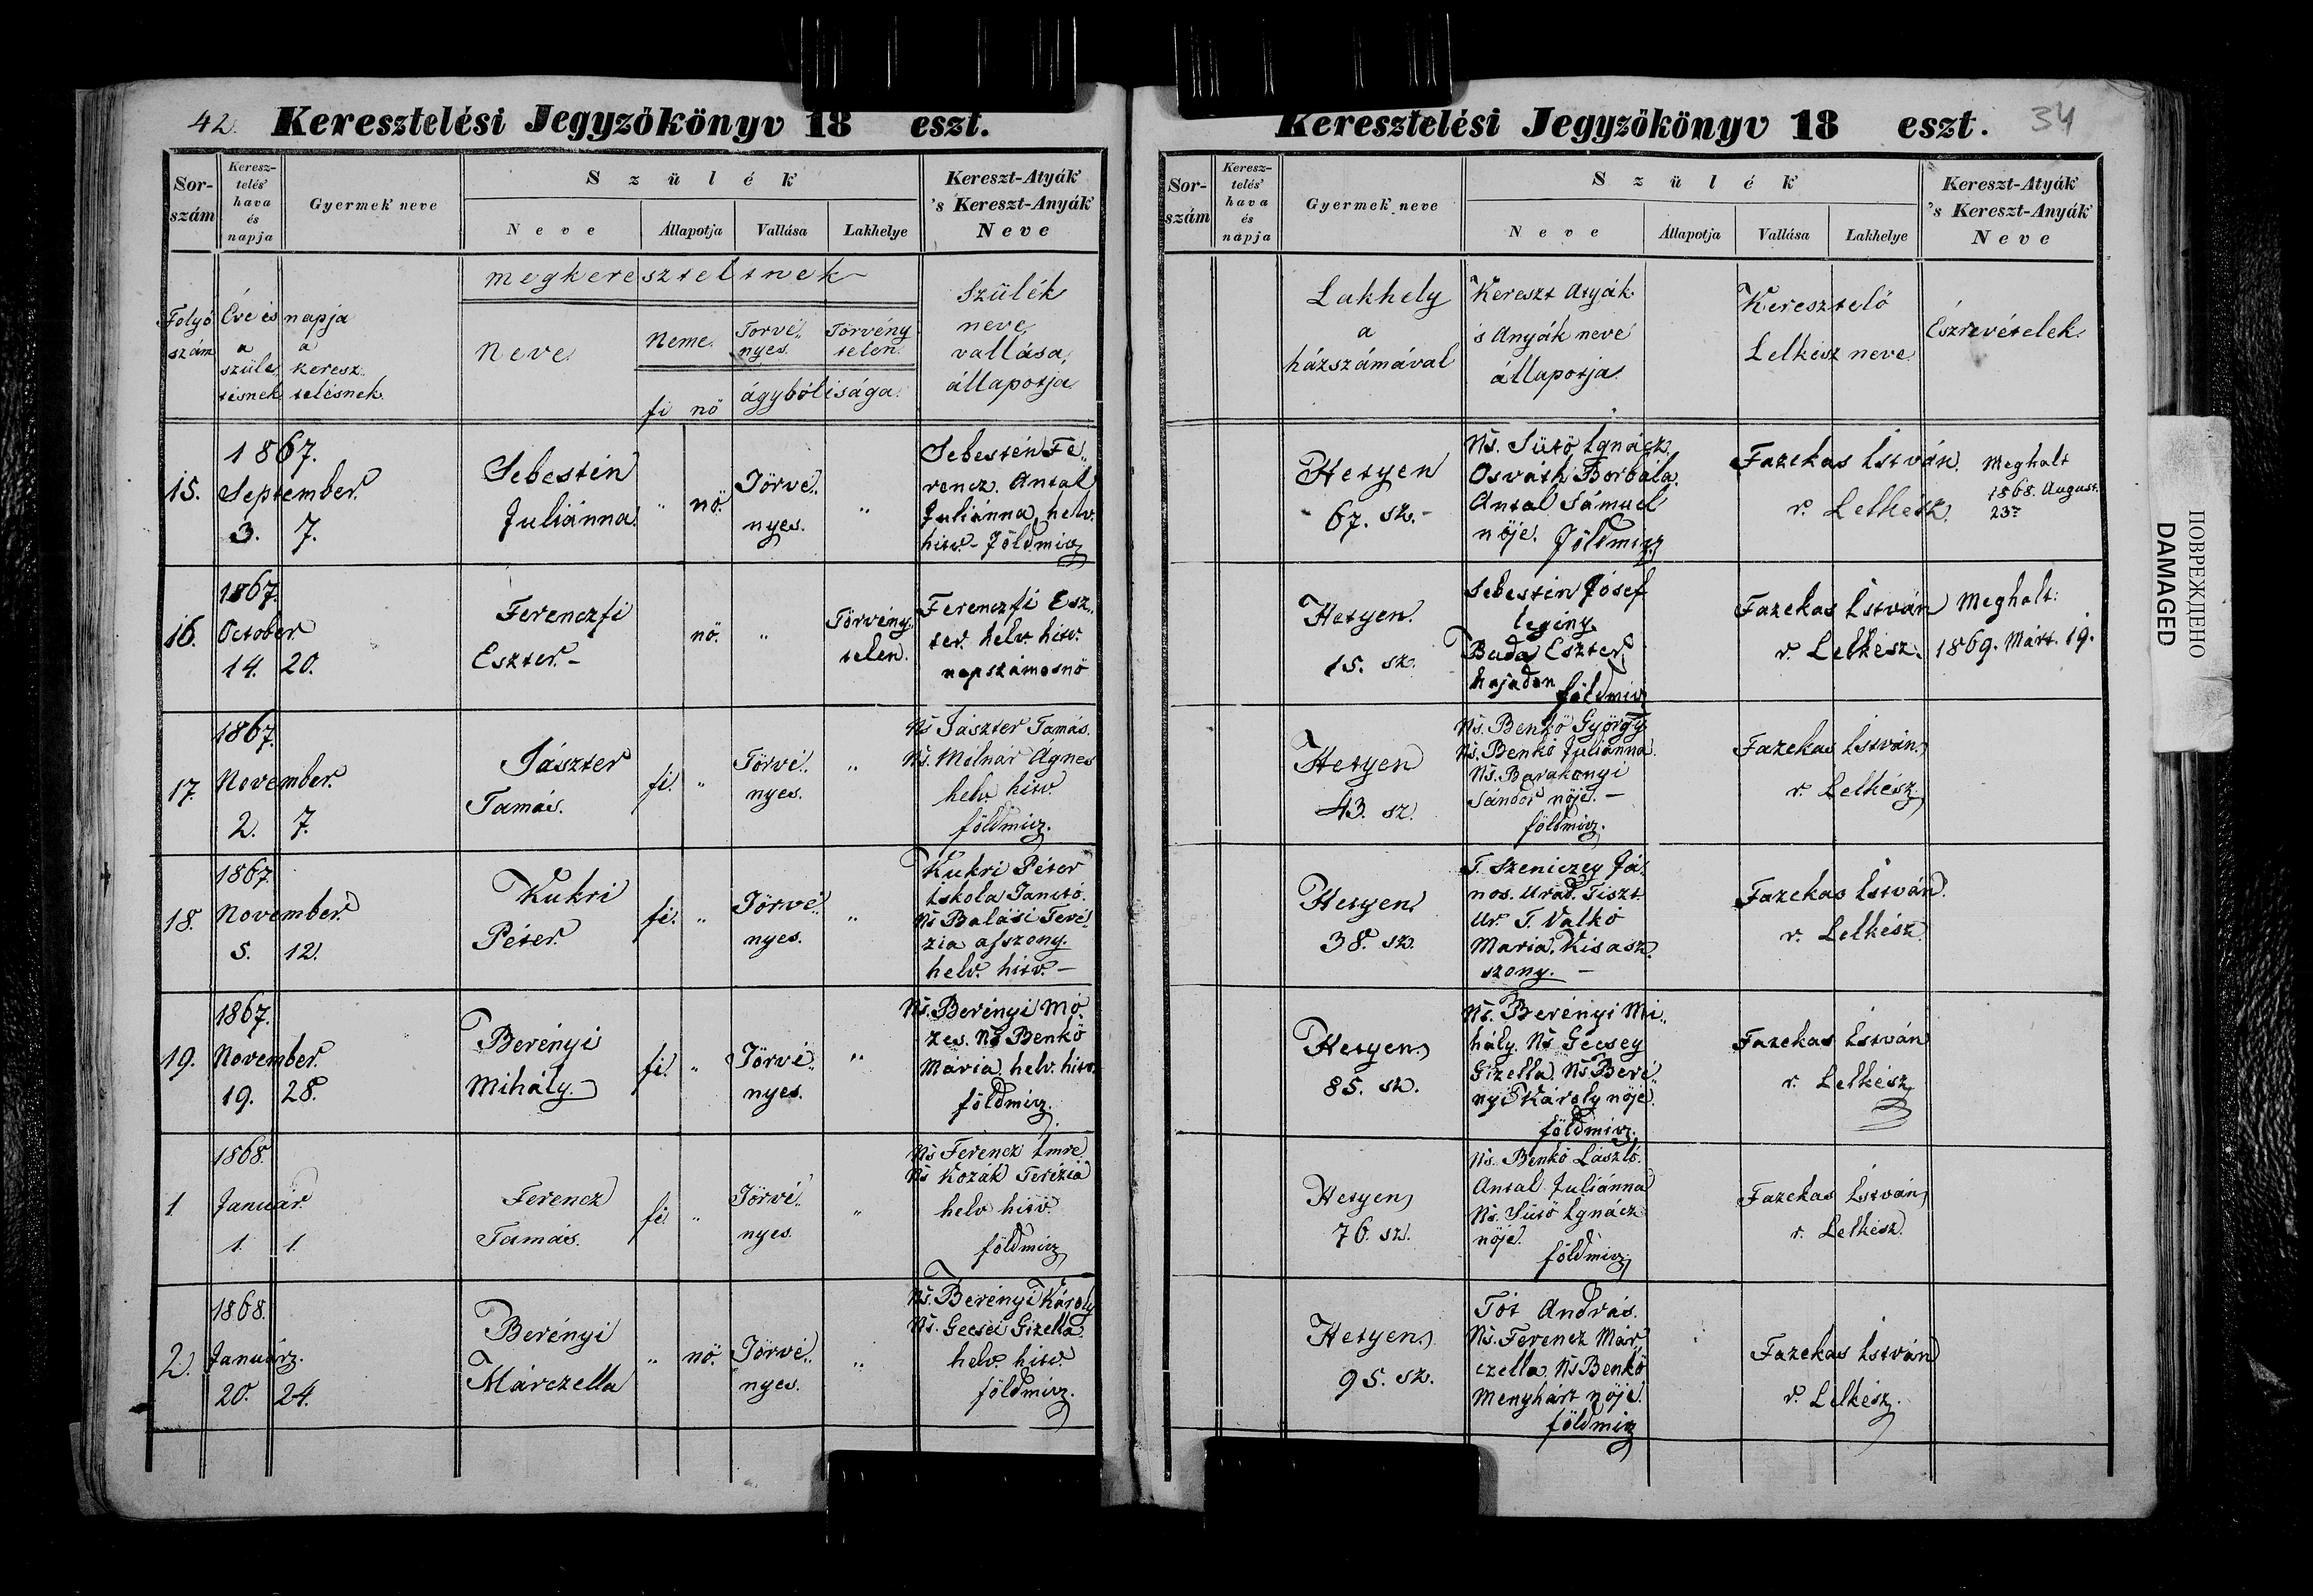 42. Keresztelési Jegyzőkönyv 18 eszt.
Sor-
szám
Keresz-
telés'
hava
és
napja
Gyermek neve
Szülék
Neve
Állapotja
Vallása
Lakhelye
Kereszt-Atyák
's Kereszt-Anyák
Neve
Folyó
szám
Éve és napja
a a
szüle keresz
tésnek telésnek.
megkereszteltnek
Neve.
Neme.
fi nő
Törvé„
nyes.
Törvény
telen.
ágybólisága.
Szülék
neve
vallása
állapotja
15.
1867.
September.
3. 7.
Sebestén
Juliánna.
„ nő.
Törvé„
nyes.
„
Sebestén Fe„
rencz. Antal
Juliánna helv.
hitv. - Földmivz
16.
1867.
October
14. 20.
Ferenczfi
Eszter. -
nő.
„
Törvény„
telen.
Ferenczfi Esz„
ter. helv. hitv.
napszámosnő
17.
1867.
November.
2. 7.
Jászter
Tamás.
fi. „
Törvé„
nyes.
„
Ns Jászter Tamás.
Ns. Mólnár Ágnes
helv. hitv.
földmivz.
18.
1867.
November.
5. 12.
Kukri
Péter.
fi. „
Törvé„
nyes.
„
Kukri Péter
Iskola Tanító.
Ns Balási Teré„
zia aſszony.
helv. hitv. -
19.
1867.
November.
19. 28.
Berényi
Mihály.
fi. „
Törvé„
nyes.
„
Ns. Berényi Mó„
zes. Ns Benkő
Mária. helv. hitv.
földmivz.
1
1868.
Január.
1. 1.
Ferencz
Tamás.
fi. „
Törvé„
nyes.
„
Ns Ferencz Imre
Ns Kozák Terézia
helv. hitv.
földmivz
2.
1868.
Januárz.
20. 24.
Berényi
Márczella
„ nő.
Törvé„
nyes.
„
Ns. Berényi Károly
Ns. Gecsei Gizella.
helv. hitv.
földmivz.
Keresztelési Jegyzőkönyv 18 eszt. 34
Sor-
szám
Keresz-
telés'
hava
és
napja
Gyermek neve
Szülék
Neve
Állapotja
Vallása
Lakhelye
Kereszt-Atyák
's Kereszt-Anyák
Neve
Lakhely
a
házszámával
Kereszt Atyák
's Anyák neve
állapotja.
Keresztelő
Lelkész neve
Észrevételek.
Hetyen
67. sz. -
Ns. Sütő Ignácz.
Osváth Borbála.
Antal Sámuel
nője. Földmivz
Fazekas István.
r. Lelkész.
Meghalt
1868. August.
23n
Hetyen.
15. sz.
Sebestén Jósef
legény.
Buda Eszter
hajadon
földmivz
Fazekas István
r. Lelkész.
Meghalt:
1869. Márt. 19.
Hetyen
43. sz.
Ns. Benkő György
Ns. Benkő Juliánna.
Ns. Barakonyi
Sándor nője. -
földmivz.
Fazekas István.
r. Lelkész.
Hetyen
38. sz.
T. Szeniczey Já„
nos. Urad. Tiszt.
Ur. T. Valkó
Maria. Kisasz„
szony. -
Fazekas István.
r. Lelkész.
Hetyen.
85. sz.
Ns. Berényi Mi„
hály. Ns Gecsey
Gizella. Ns Beré„
nyi Károly nője.
földmivz.
Fazekas István
r. Lelkész
Hetyen
76. sz.
Ns. Benkő László.
Antal Juliánna
Ns. Sütő Ignácz
nője.
földmivz
Fazekas István
r. Lelkész.
Hetyen.
95. sz.
Tót András.
Ns. Ferencz Már„
czella. Ns Benkő
Menyhárt nője.
földmivz
Fazekas István
r. Lelkész.
ПОВРЕЖДЕНО
DAMAGED